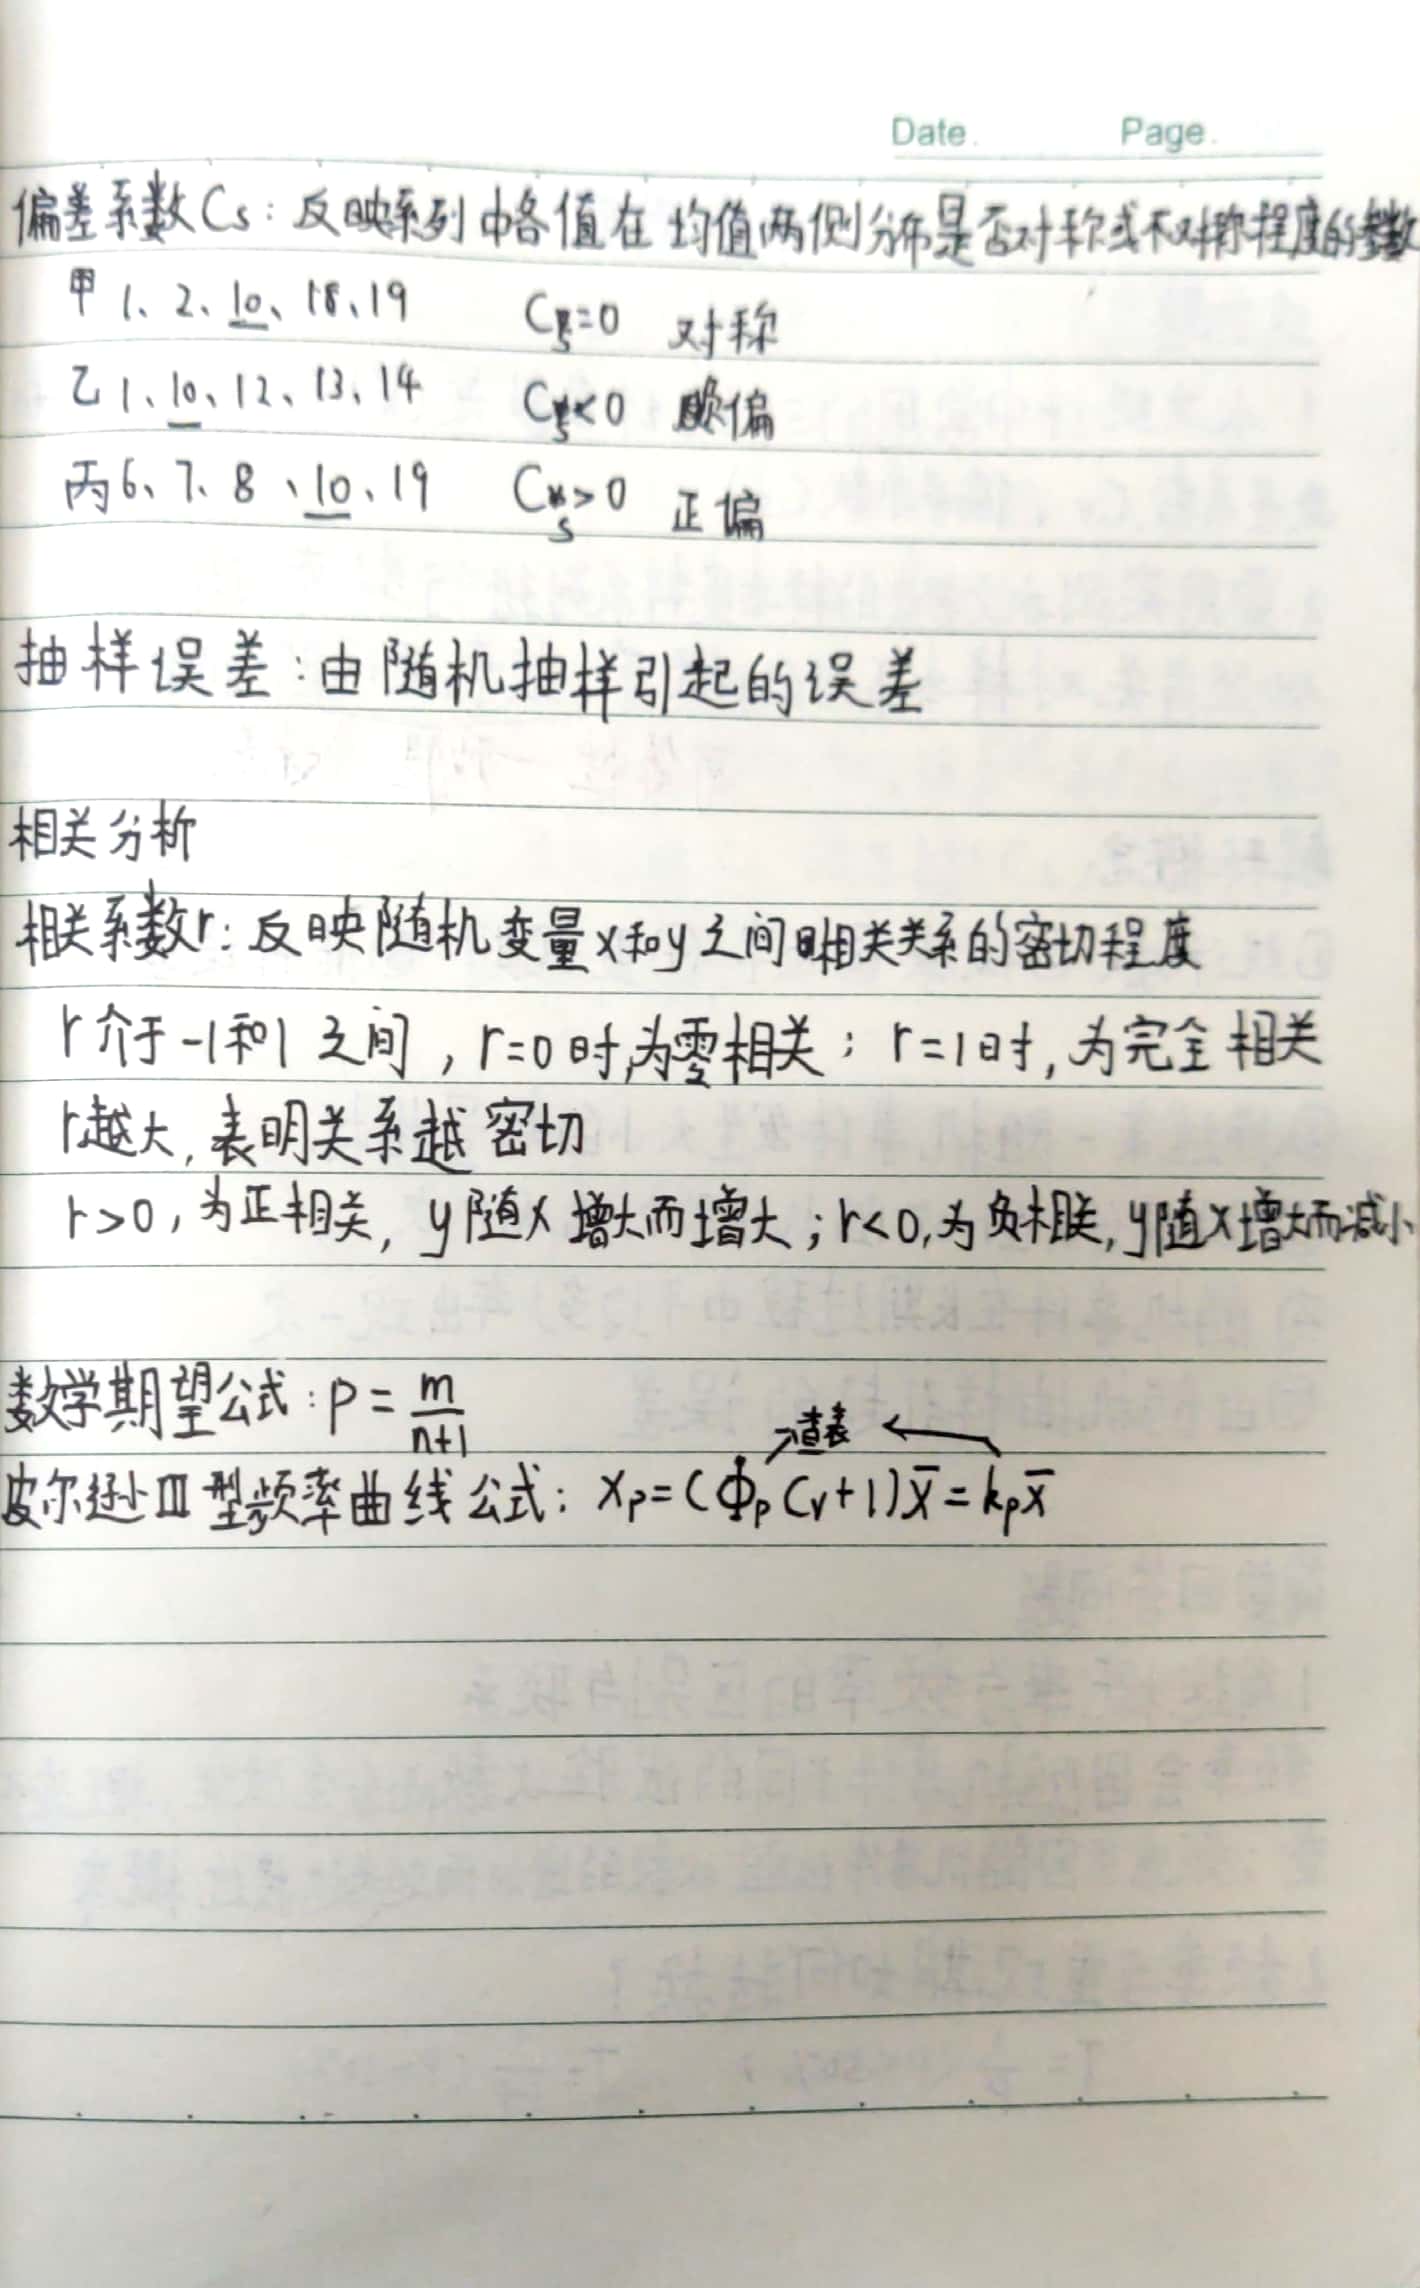 Date.  Page.
偏差系数Cs：反映系列中各值在均值两侧分布是否对称或不对称程度的参数
甲 1、2、10、18、19  Cs=0  对称
乙 1、10、12、13、14  Cs<0  负偏
丙 6、7、8、10、19  Cs>0  正偏
抽样误差：由随机抽样引起的误差
相关分析
相关系数r：反映随机变量x和y之间相关关系的密切程度
r介于-1和1之间，r=0时，为零相关；r=1时，为完全相关
r越大，表明关系越密切
r>0，为正相关，y随x增大而增大；r<0，为负相关，y随x增大而减小
数学期望公式：P=m/(n+1)
查表
皮尔逊III型频率曲线公式：xp=(Φp Cv+1)x̄=kp x̄